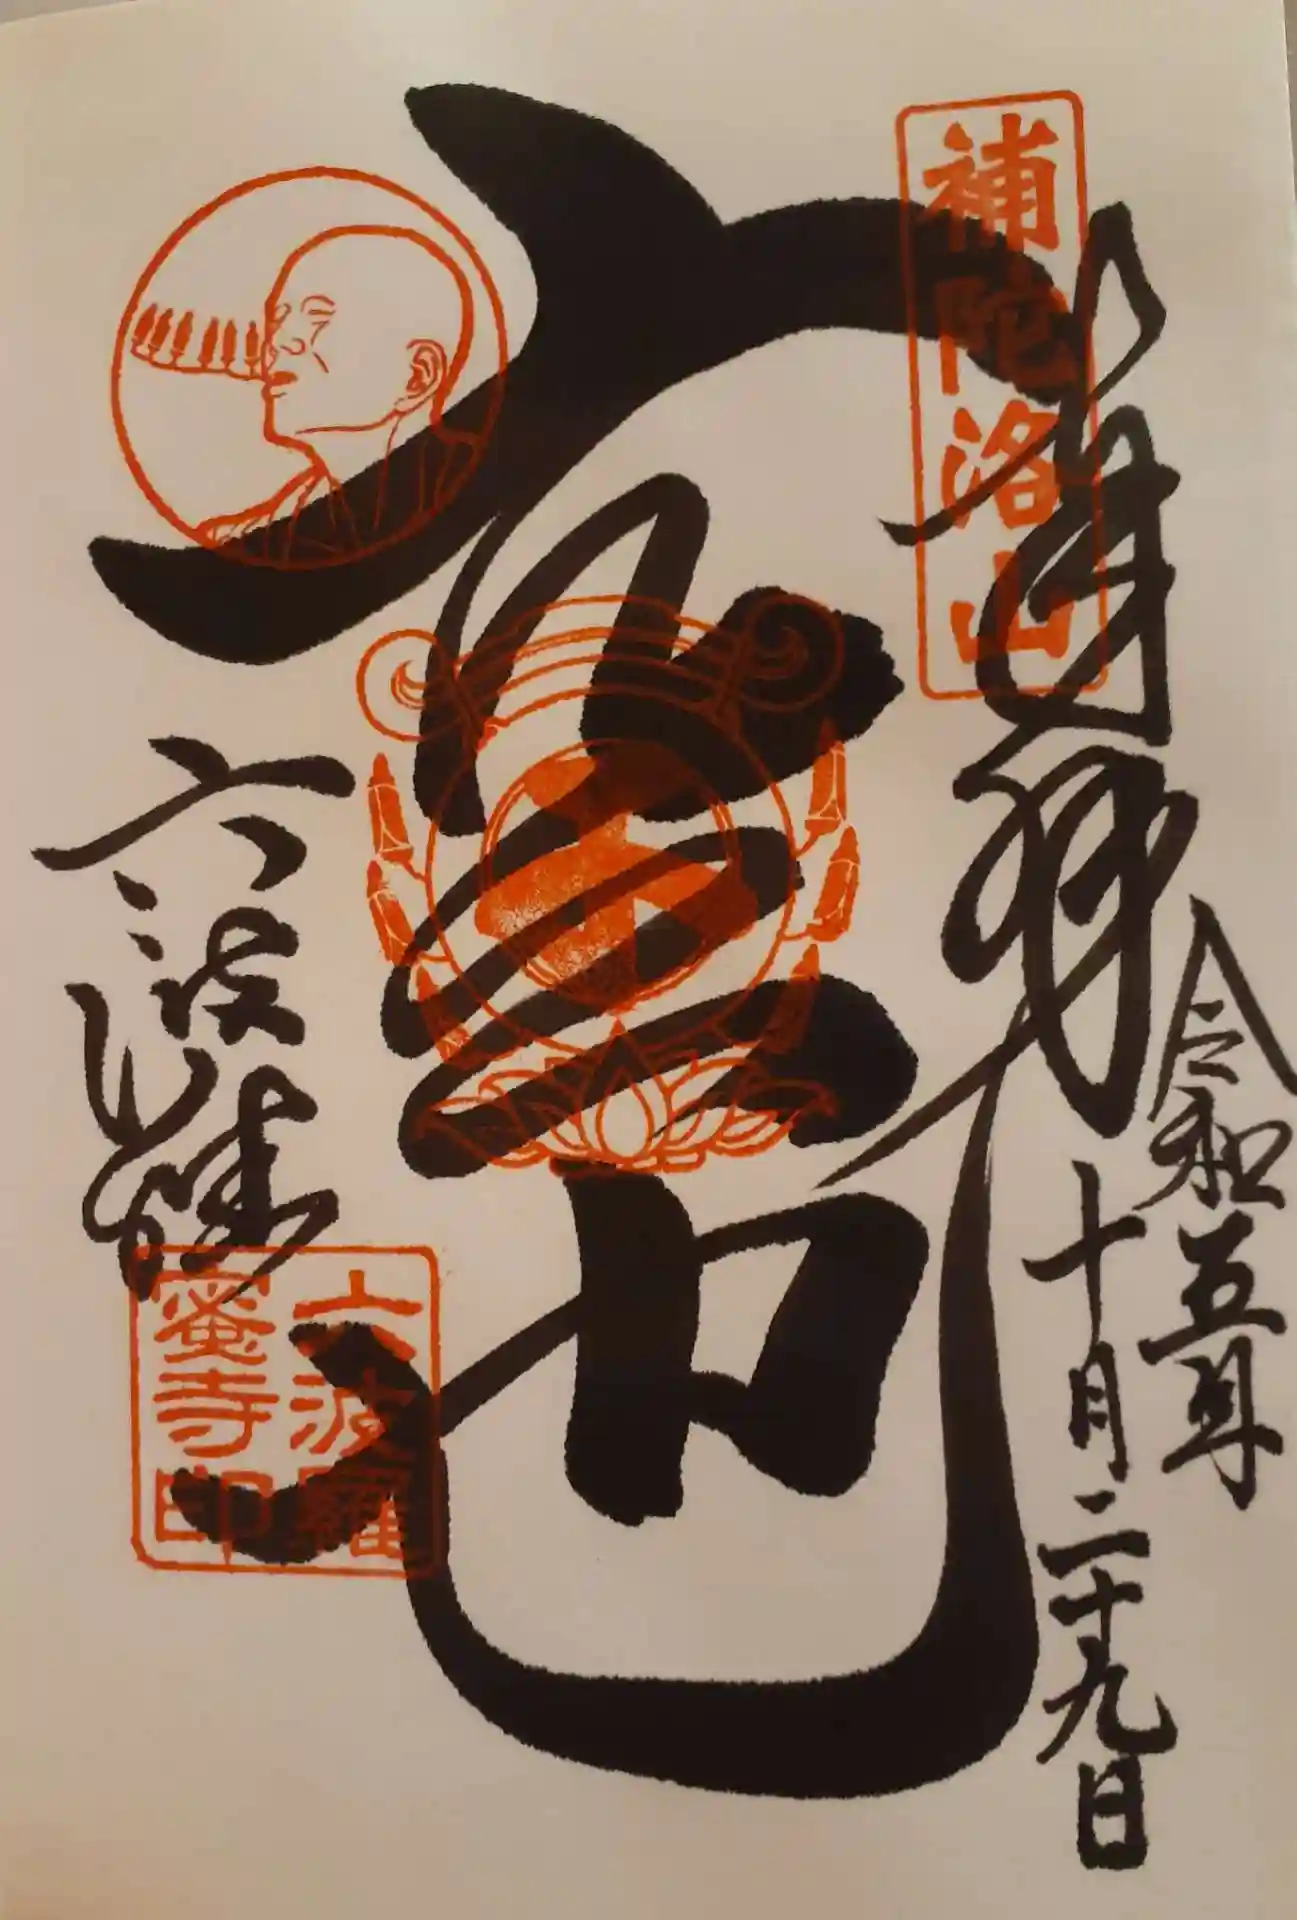 令和五年
十月二十九日
奉拝
補陀洛山
空也
六波羅蜜寺
六波羅
蜜寺印